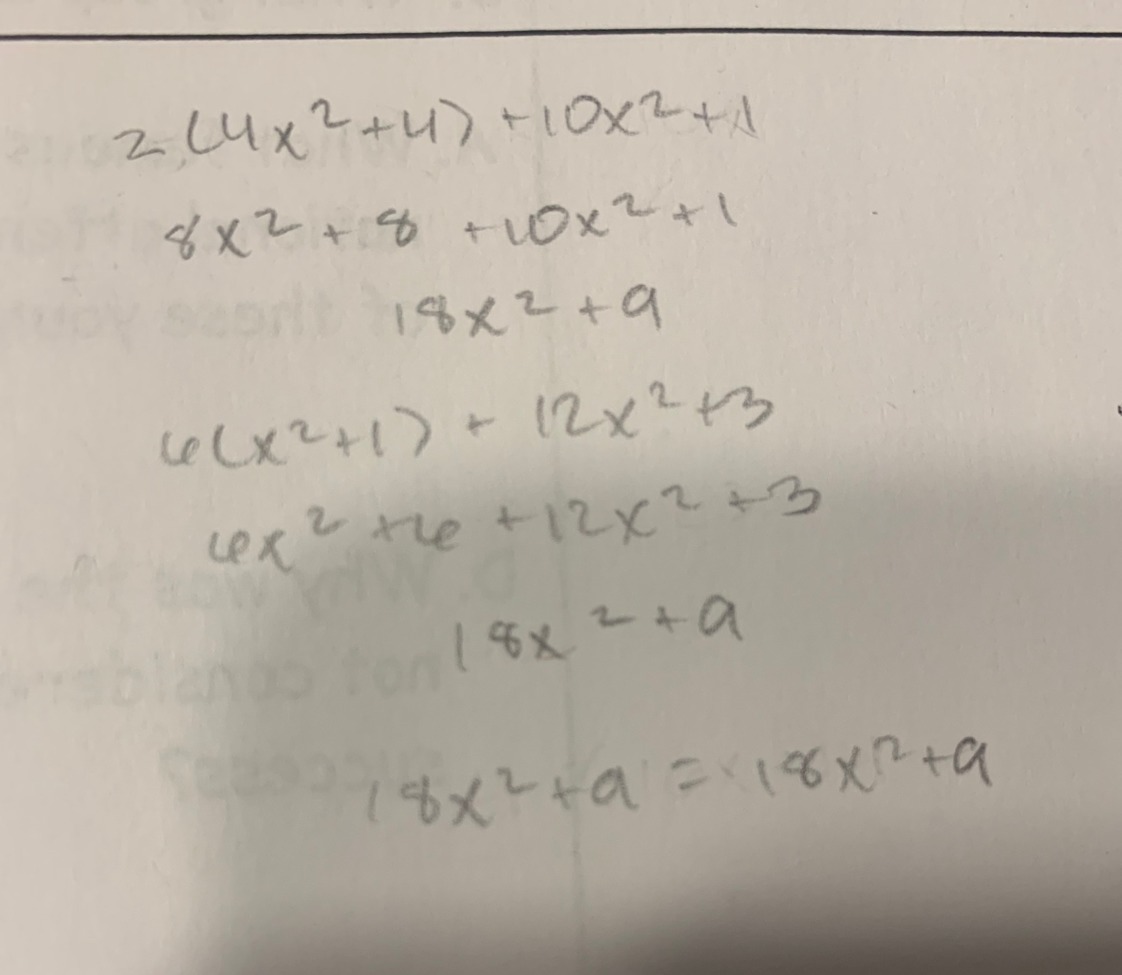 2(4x²+4)+10x²+1
8x²+8+10x²+1
18x²+9
6(x²+1)+12x²+3
6x²+6+12x²+3
18x²+9
18x²+9=18x²+9